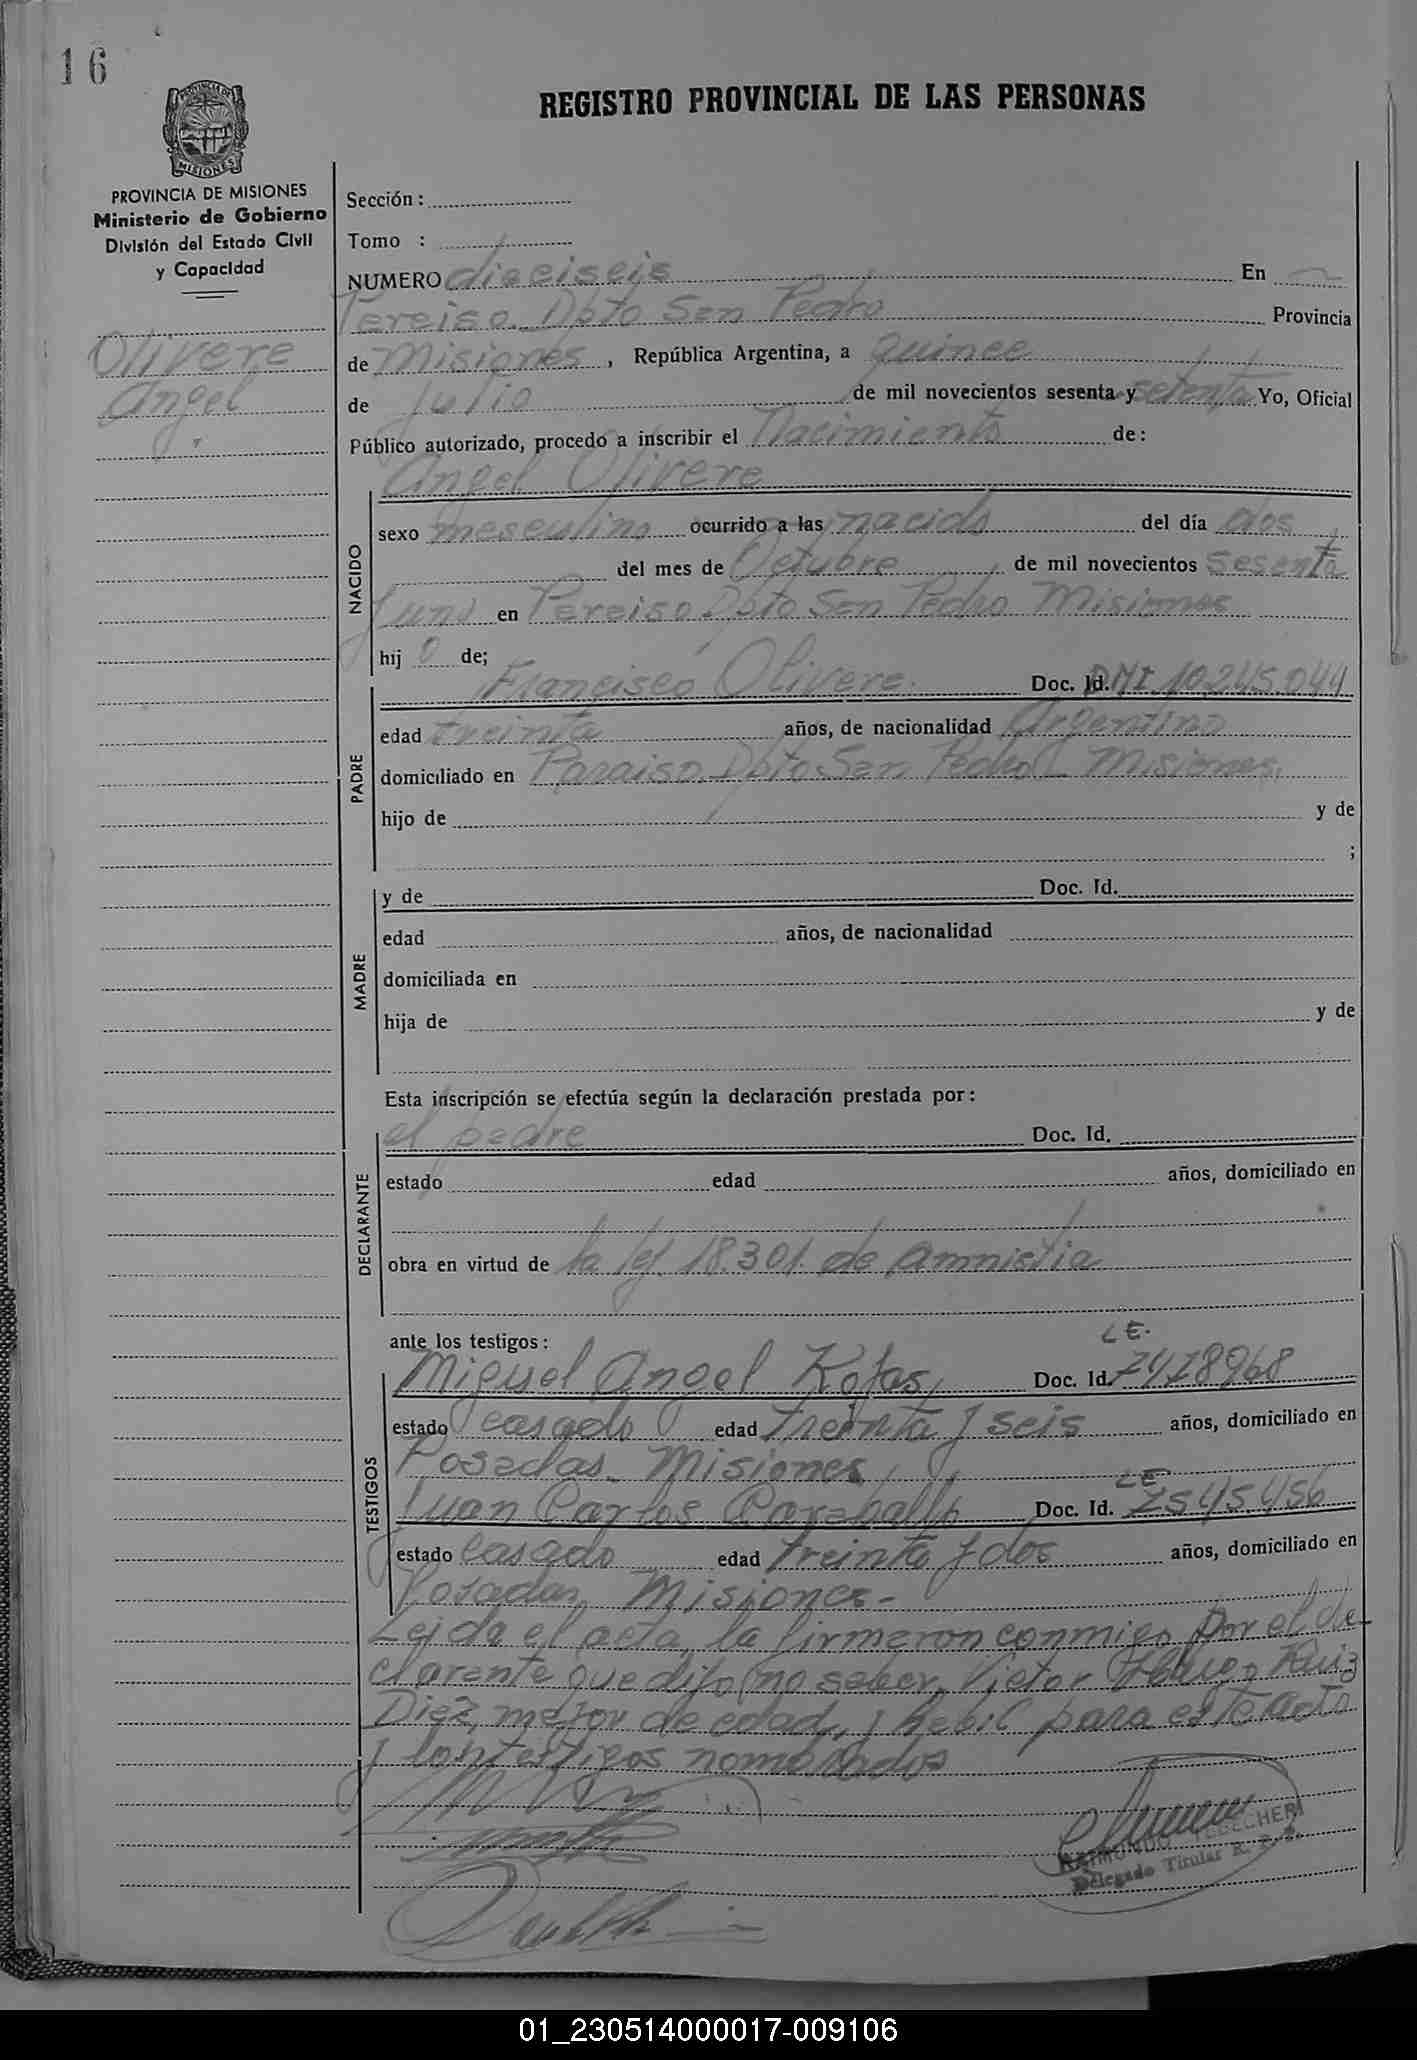 16
PROVINCIA DE
MISIONES
REGISTRO PROVINCIAL DE LAS PERSONAS
PROVINCIA DE MISIONES
Ministerio de Gobierno
División del Estado Civil
y Capacidad
Olivera
Angel
Sección:
Tomo :
NUMERO dieciseis En
Pereiso Dpto San Pedro Provincia
de Misiones, República Argentina, a quince
de Julio de mil novecientos sesenta y setenta Yo, Oficial
Público autorizado, procedo a inscribir el Nacimiento de:
Angel Olivera
NACIDO
sexo masculino ocurrido a las nacido del día dos
del mes de Octubre de mil novecientos sesenta
y uno en Pereiso Dpto San Pedro Misiones
hij o de;
PADRE
Francisco Olivera Doc. Id. DNI 10.245.044
edad treinta años, de nacionalidad Argentino
domiciliado en Paraiso Dpto San Pedro - Misiones.
hijo de y de
;
MADRE
y de Doc. Id.
edad años, de nacionalidad
domiciliada en
hija de y de
Esta inscripción se efectúa según la declaración prestada por:
DECLARANTE
el padre Doc. Id.
estado edad años, domiciliado en
obra en virtud de la ley 18.301. de Amnistia
ante los testigos:
TESTIGOS
L E.
Miguel Angel Rojas, Doc. Id. 7478968
estado casado edad treinta y seis años, domiciliado en
Posadas - Misiones
LE
Juan Carlos Caraballo Doc. Id. 7545.456
estado Casado edad treinta y dos años, domiciliado en
Posadas Misiones -
Leida el acta, la firmaron conmigo por el de
clarante que dijo no saber, Victor Hugo Ruiz
Diez, mayor de edad, y habil para este acto
y los testigos nombrados
RAIMUNDO
Delegado Titular R. P. P.
01_230514000017-009106